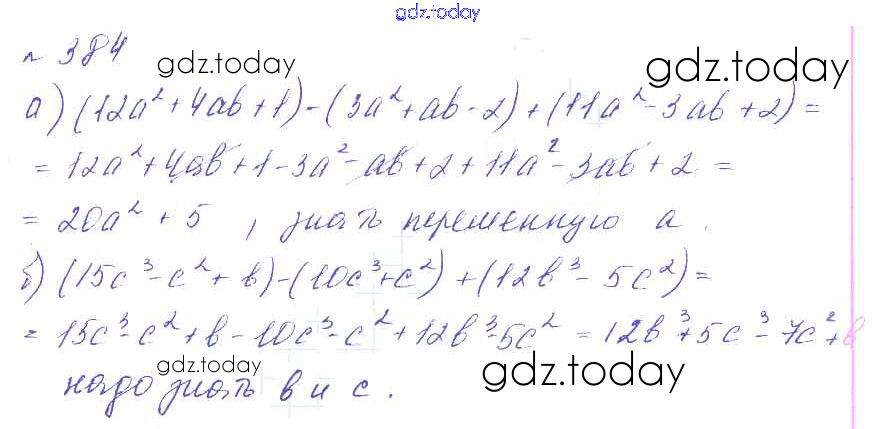 gdz.today
№ 384
gdz.today gdz.today
а) (12a² + 4ab + 1) - (3a² + ab - 2) + (11a² - 3ab + 2) =
= 12a² + 4ab + 1 - 3a² - ab + 2 + 11a² - 3ab + 2 =
= 20a² + 5 , знать переменную a .
б) (15c³ - c² + b) - (10c³ + c²) + (12b³ - 5c²) =
= 15c³ - c² + b - 10c³ - c² + 12b³ - 5c² = 12b³ + 5c³ - 7c² + b
gdz.today gdz.today
надо знать b и c .